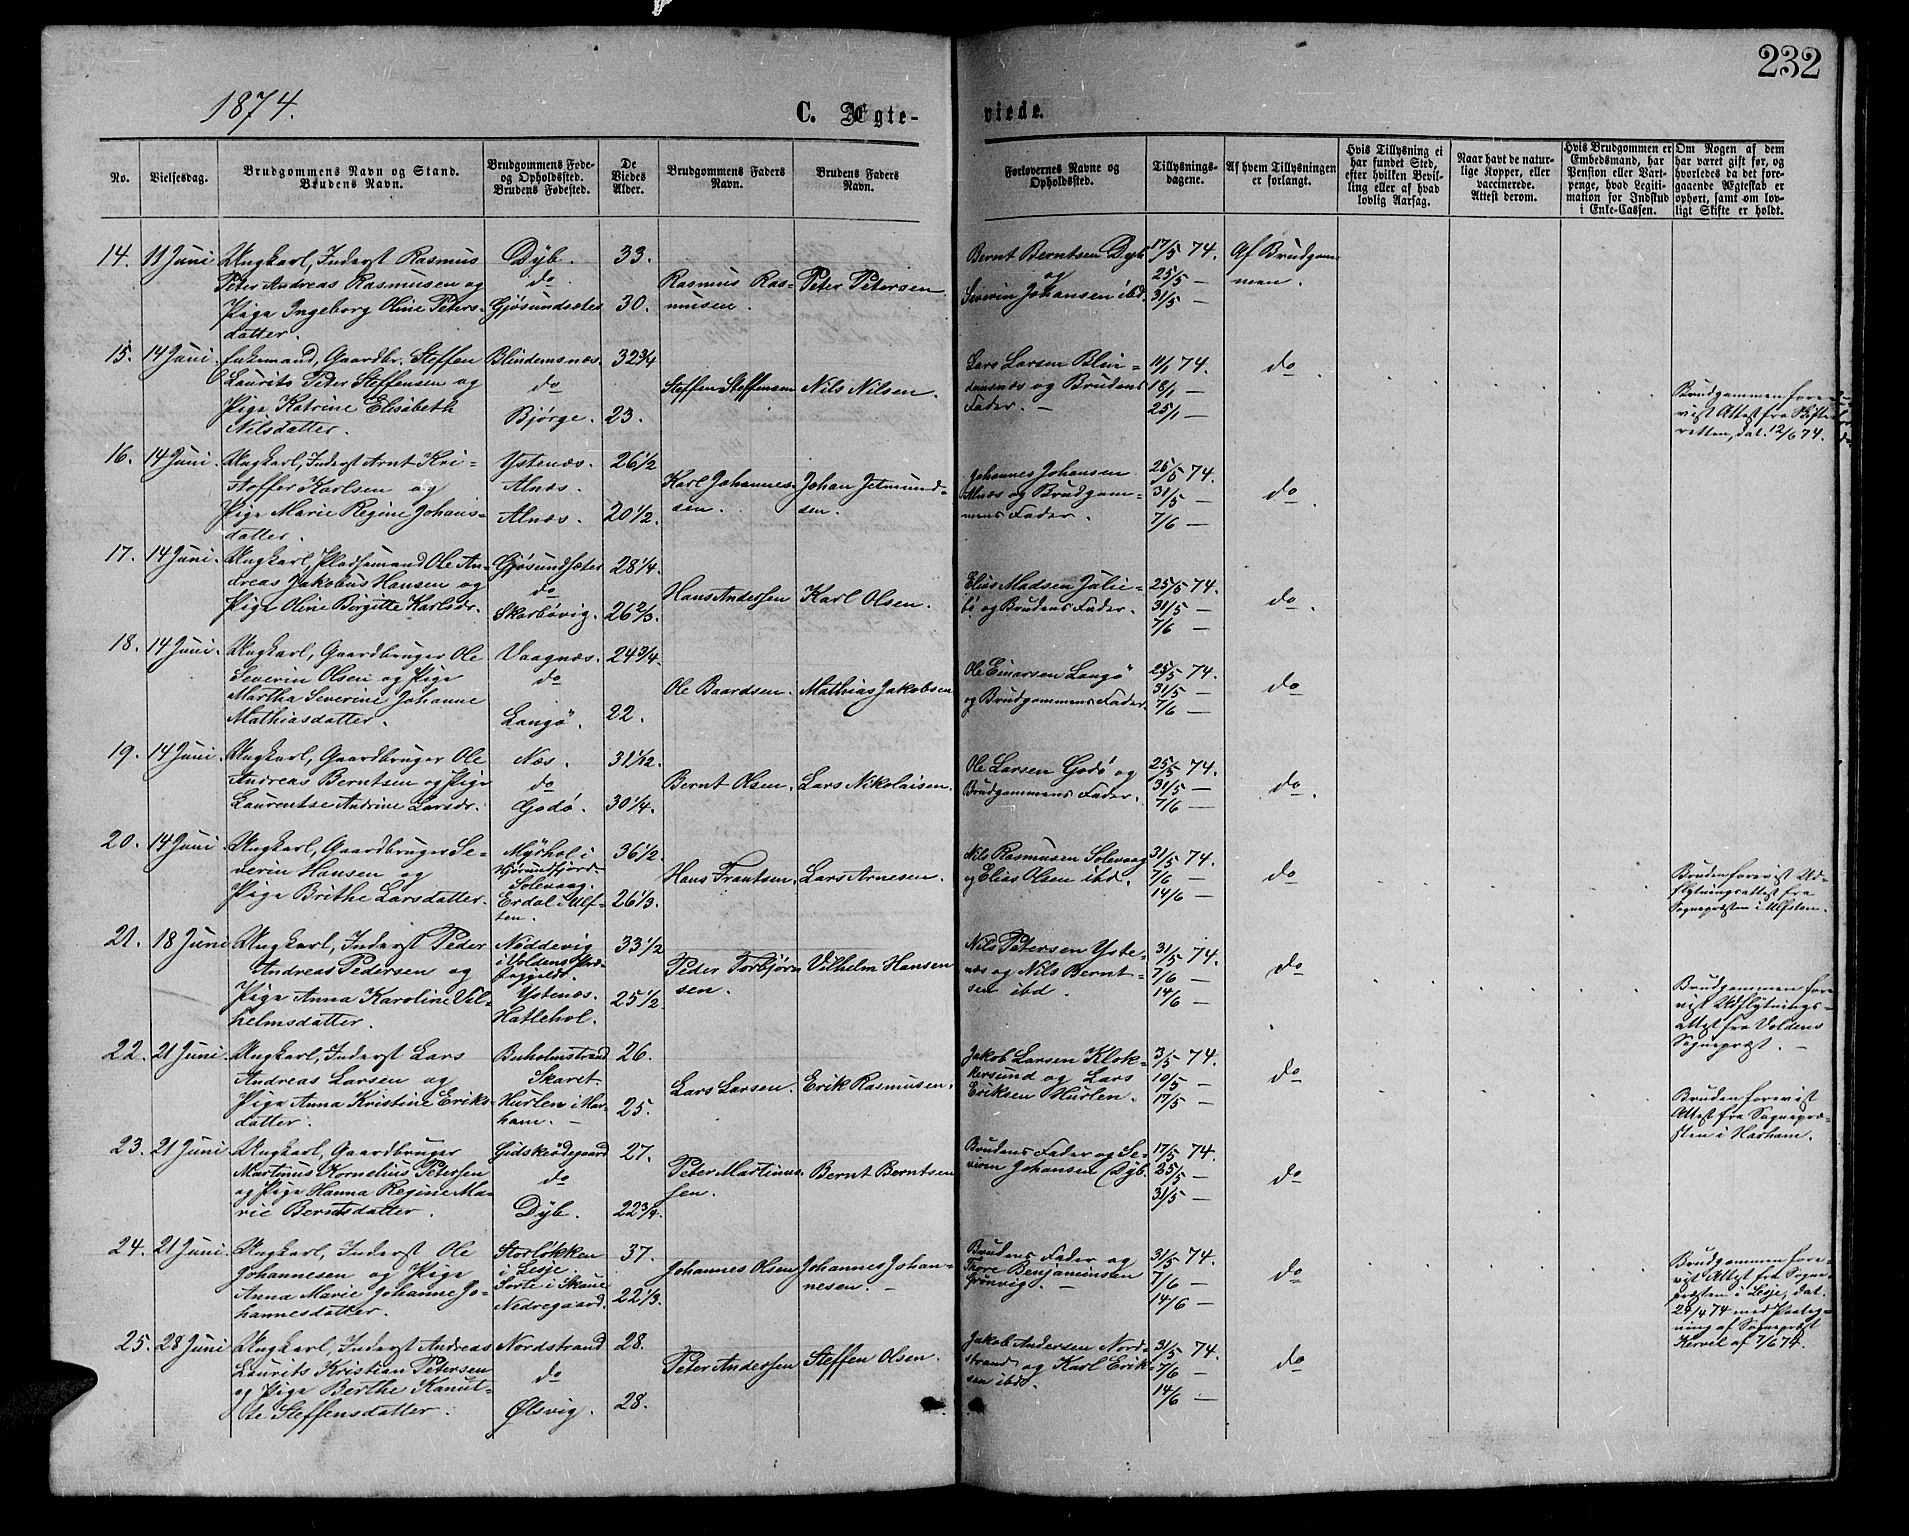 232
1874.
C. Ægte-
viede.
No.
Vielsesdag.
Brudgommens Navn og Stand.
Brudens Navn.
Brudgommens Føde-
og Opholdssted.
Brudens Fødested.
De
Viedes
Alder.
Brudgommens Faders
Navn.
Brudens Faders
Navn.
Forlovernes Navne og
Opholdssted.
Tillysnings-
dagene.
Af hvem Tillysningen
er forlangt.
Hvis Tillysning ei
har fundet Sted,
efter hvilken Bevil-
ling eller af hvad
lovlig Aarsag.
Naar havt de natur-
lige Kopper, eller
vaccinerede.
Attest derom.
Hvis Brudgommen er
Embedsmand, har
Pension eller Vart-
penge, hvad Legiti-
mation for Indskud
i Enke-Cassen.
Om Nogen af dem
har været gift før, og
hvorledes da det fore-
gaaende Ægteskab er
ophørt, samt om lov-
ligt Skifte er holdt.
14. 11 Juni
Ungkarl, Inderst Rasmus
Peter Andreas Rasmusen og
Pige Ingeborg Oline Peters-
datter.
Dyb.
do
Gjøsundsæter
33.
30.
Rasmus Ras-
musen.
Peter Petersen.
Bernt Berntsen Dyb
og
Severin Johansen ibd.
17/5 74.
25/5 —
31/5 —
Af Brudgom-
men.
15. 14 Juni.
Enkemand, Gaardbr. Steffen
Laurits Peter Steffensen og
Pige Katrine Elisabeth
Nilsdatter.
Blindemsnæs.
do
Bjørge.
32 3/4
23.
Steffen Steffensen
Nils Nilsen.
Lars Larsen Blin-
demsnæs og Brudens
Fader. —
11/1 74.
18/1 —
25/1 —
do.
Brudgommen fore-
vist Attest fra Skifte-
retten, dat. 12/6 74.
16. 14 Juni.
Ungkarl, Inderst Arnt Kri-
stoffer Karlsen og
Pige Marie Regine Johans-
datter.
Ystenæs.
Alnæs.
Alnæs.
26 1/2
20 1/2.
Karl Johannes-
sen.
Johan Jetmund-
sen.
Johannes Johansen
Alnæs og Brudgom-
mens Fader.
25/5 74.
31/5 —
7/6 —
do.
17. 14 Juni.
Ungkarl, Pladsemand Ole An-
dreas Jakobus Hansen og
Pige Oline Birgitte Karlsdr.
Gjøsundsæter
do
Skarbøvig.
28 1/4.
26 2/3.
Hans Andersen
Karl Olsen.
Elias Madsen Julie-
bø og Brudens Fader.
25/5 74.
31/5 —
7/6 —
do.
18. 14 Juni.
Ungkarl, Gaardbruger Ole
Severin Olsen og Pige
Martha Severine Johanne
Mathiasdatter.
Vaagnæs.
do
Langø.
24 3/4.
22.
Ole Baardsen.
Mathias Jakobsen
Ole Einarsen Langø
og Brudgommens Fader.
25/5 74.
31/5 —
7/6 —
do
19. 14 Juni.
Ungkarl, Gaardbruger Ole
Andreas Berntsen og Pige
Laurentse Andrine Larsdr.
Næs.
do
Godø.
31 1/12.
30 1/4.
Bernt Olsen.
Lars Nikolaisen.
Ole Larsen Godø og
Brudgommens Fader.
25/5 74.
31/5 —
7/6 —
do.
20. 14 Juni
Ungkarl, Gaardbruger Se-
verin Hansen og
Pige Brithe Larsdatter.
Myrhol i
Hjørundfjord.
Solevaag.
Erdal i Ulf-
sten.
36 1/2.
26 1/3.
Hans Frantsen.
Lars Arnesen.
Nils Rasmusen Solevaag
og Elias Olsen ibd.
31/5 74.
7/6 —
14/6 —
do
Bruden forevist Ud-
flytningsattest fra
Sognepræsten i Ulfsten.
21. 18 Juni
Ungkarl, Inderst Peder
Andreas Pedersen og
Pige Anna Karoline Vil-
helmsdatter.
Nøddevig
i Voldens Præ-
stegjeld.
Ystenæs.
Hatlehol.
33 1/2
25 1/2
Peder Torbjørn-
sen.
Vilhelm Hansen
Nils Petersen Yste-
næs og Nils Bernt-
sen ibd.
31/5 74.
7/6 —
14/6 —
do
Brudgommen fore-
vist Udflytnings-
attest fra Voldens
Sognepræst. —
22. 21 Juni.
Ungkarl, Inderst Lars
Andreas Larsen og
Pige Anna Kristine Eriks-
datter.
Buholmstrand
Skaret.
Hurlen i Har-
ham. —
26.
25.
Lars Larsen.
Erik Rasmusen.
Jakob Larsen Klok-
kersund og Lars
Eriksen Hurlen.
3/5 74.
10/5 —
17/5 —
do
Bruden forevist
Attest fra Sognepræ-
sten i Harham.
23. 21 Juni
Ungkarl, Gaardbruger
Martinus Kornelius Petersen
og Pige Hanna Regine Ma-
rie Berntsdatter.
Gidskeødegaard
do
Dyb.
27.
22 3/4.
Peter Martinus-
sen.
Bernt Berntsen
Brudens Fader og Se-
verin Johansen Dyb.
17/5 74.
25/5 —
31/5 —
do
24. 21 Juni
Ungkarl, Inderst Ole
Johannesen og Pige
Anna Marie Johanne Jo-
hannesdatter.
Storløkken
i Lesje.
Sorte i Skaue
Nedregaard.
37.
22 1/3.
Johannes Olsen
Johannes Johan-
nesen. —
Brudens Fader og
Thore Benjaminsen
Grønvig. —
31/5 74.
7/6 —
14/6 —
do
Brudgommen fore-
vist Attest fra Sogne-
præsten i Lesje, dat.
24/4 74 med Paateg-
ning af Sognepræst
Kervel af 7/6 74.
25. 28 Juni
Ungkarl, Inderst Andreas
Laurits Kristian Petersen
og Pige Berthe Kanut-
te Steffensdatter.
Nordstrand
do
Ølsvig.
28.
28.
Peter Andersen
Steffen Olsen.
Jakob Andersen Nord-
strand og Karl Erik-
sen ibd.
31/5 74.
7/6 —
14/6 —
do